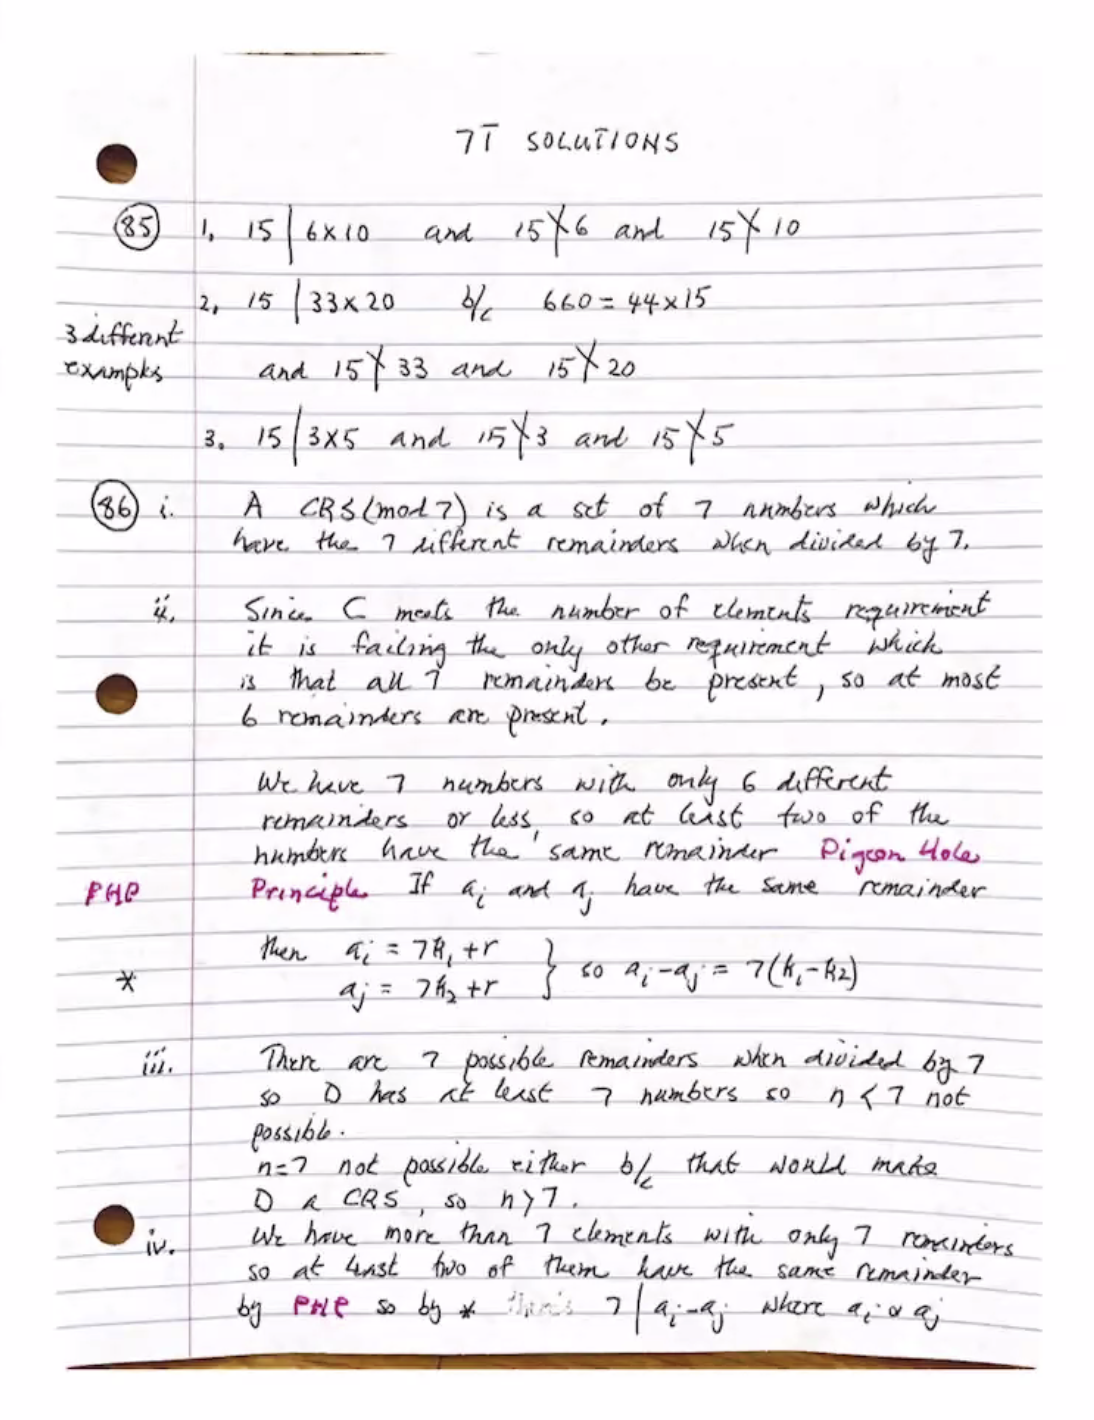 7T SOLUTIONS
85 1. 15 | 6×10 and 15 ∤ 6 and 15 ∤ 10
2. 15 | 33×20 b/c 660 = 44×15
3 different
examples
and 15 ∤ 33 and 15 ∤ 20
3. 15 | 3×5 and 15 ∤ 3 and 15 ∤ 5
86 i. A CRS (mod 7) is a set of 7 numbers which
have the 7 different remainders when divided by 7.
ii. Since C meets the number of elements requirement
it is failing the only other requirement which
is that all 7 remainders be present, so at most
6 remainders are present.
We have 7 numbers with only 6 different
remainders or less, so at least two of the
numbers have the same remainder Pigeon Hole
PHP Principle If aᵢ and aⱼ have the same remainder
then aᵢ = 7k₁ + r
* aⱼ = 7k₂ + r } so aᵢ - aⱼ = 7(k₁ - k2)
iii. There are 7 possible remainders when divided by 7
so D has at least 7 numbers so n < 7 not
possible.
n=7 not possible either b/c that would make
D a CRS, so n > 7.
iv. We have more than 7 elements with only 7 remainders
so at least two of them have the same remainder
by PHP so by * 7 | aᵢ - aⱼ where aᵢ & aⱼ